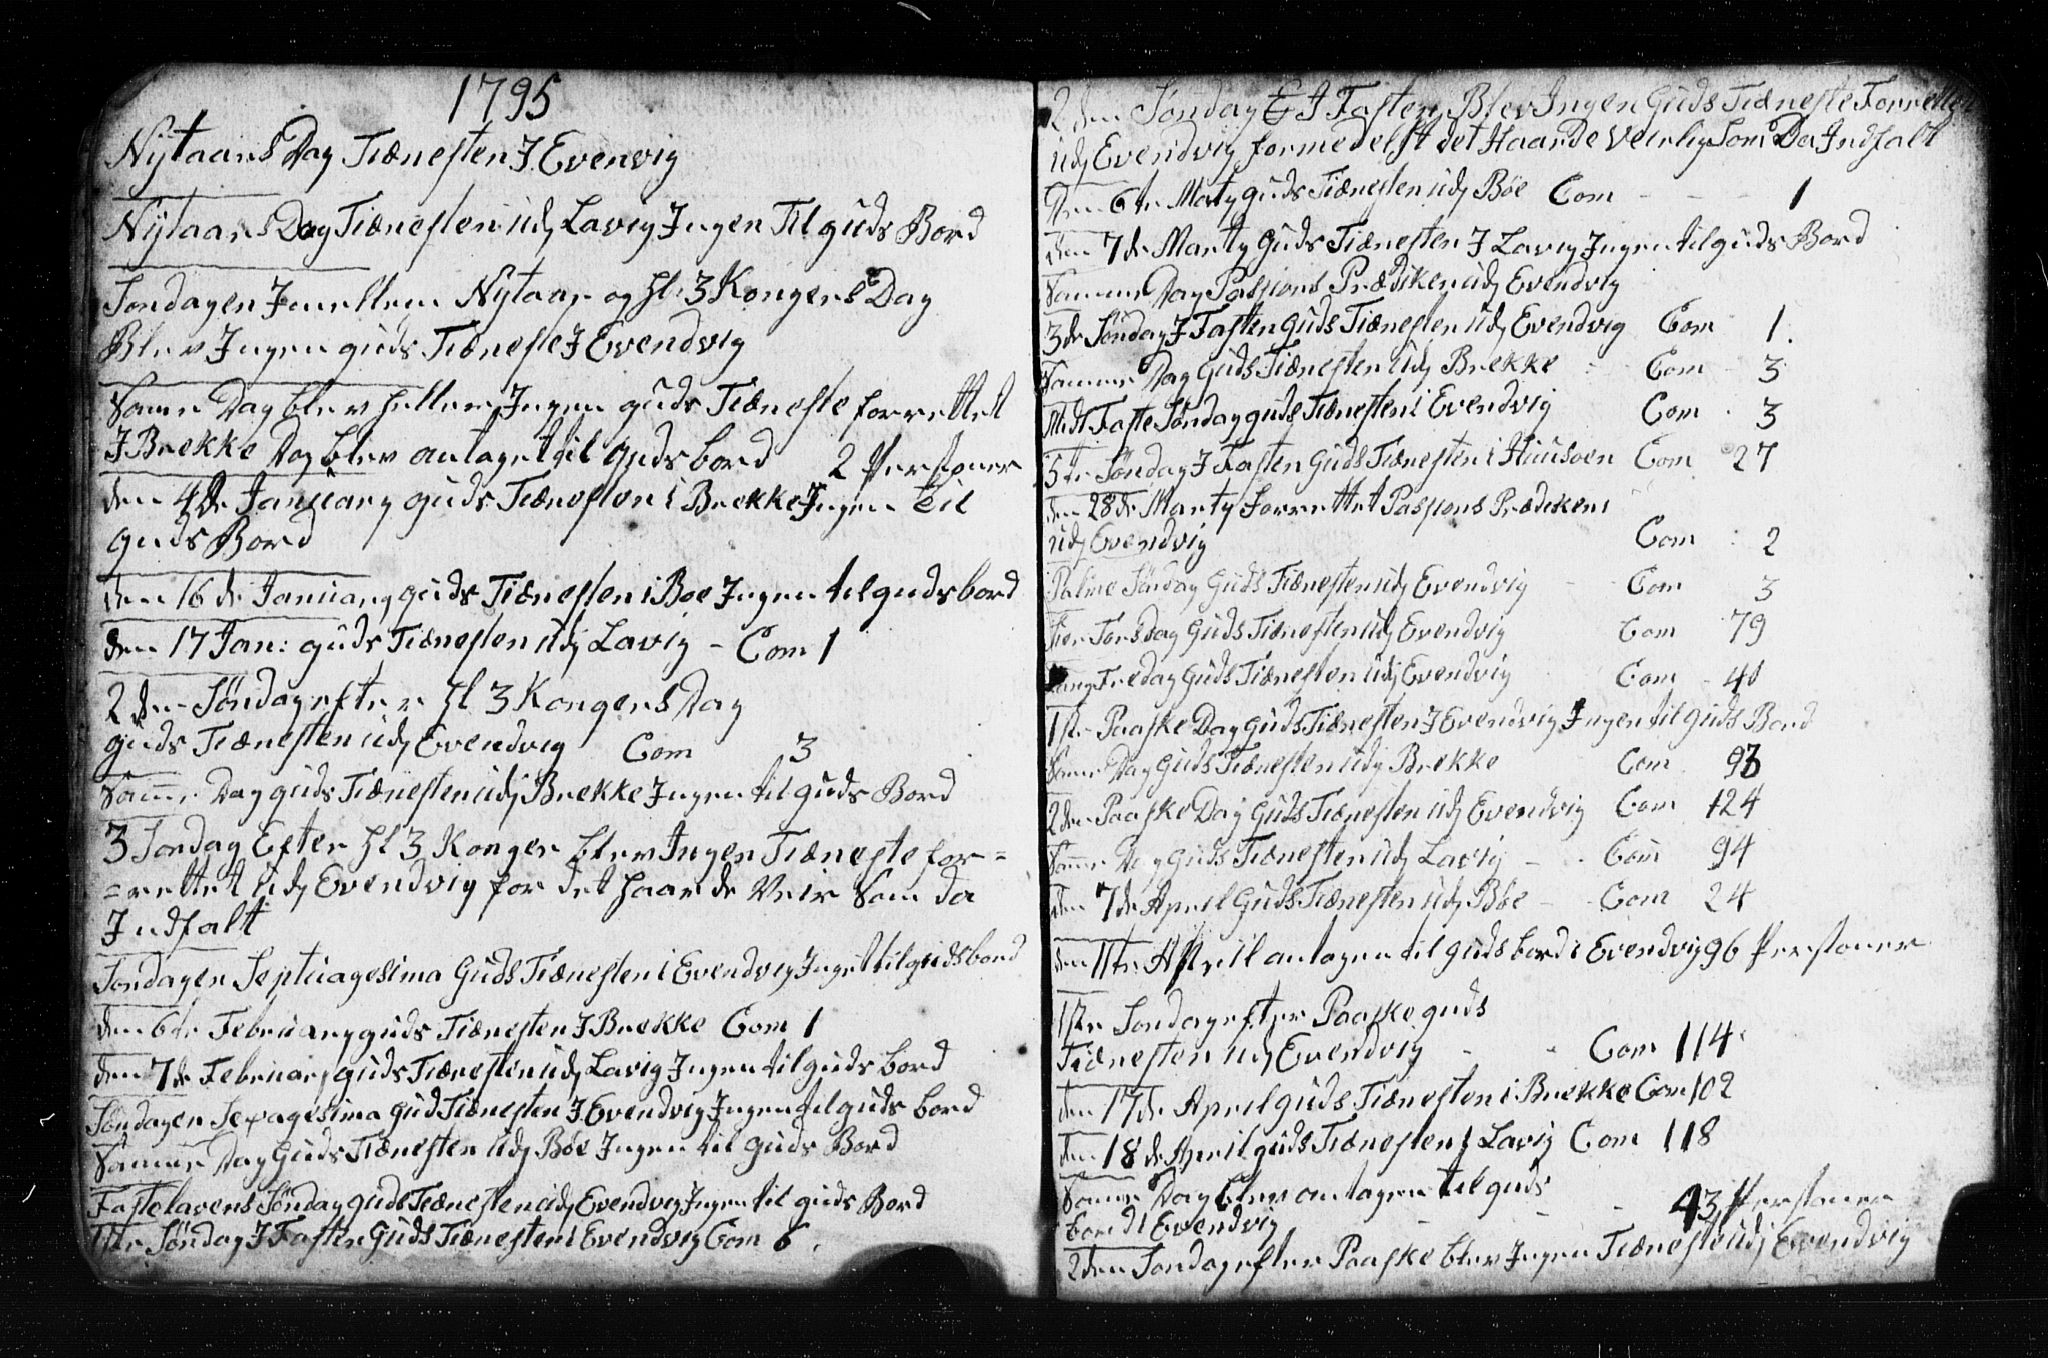 1795
Nÿtaars Dag Tiænesten I Evenvig
Nÿtaars Dag Tiænesten udj Lavig Ingen Til guds Bord
Søndagen Imellem Nÿtaar og Hl: 3 Kongers Dag
Blev Ingen guds Tiæneste I Evendvig
Samme Dag blev heller Ingen guds Tiæneste forrettet
I Brekke Dog blev antaget til guds bord 2 Personer
den 4de Januarÿ guds Tiænesten i Brekke Ingen til
guds Bord
den 16de Januarÿ guds Tiænesten i Boe Ingen til guds bord
den 17 Jan: guds Tiænesten udj Lavig - Com 1
2den Søndag efter Hl 3 Kongers Dag
guds Tiænesten udj Evendvig Com 3
Samme Dag guds Tiænesten udj Brekke Ingen til guds Bord
3 Søndag Efter Hl 3 Konger blev Ingen Tiæneste for=
=rettet udj Evendvig for det haarde Veir Som da
Indfalt
Søndagen Septuagesima Guds Tiænesten i Evendvig Inget til guds bord
den 6te Februarÿ guds Tiænesten I Brekke Com 1
den 7de Februarÿ guds Tiænesten udj Lavig Ingen til guds bord
Søndagen Sexagesima Gud Tiænesten I Evendvig Ingen til guds bord
Samme Dag Guds Tiænesten udj Böe Ingen til guds Bord
Fastelavens Söndag guds Tiænesten udj Evendvig Ingen til guds Bord
1ste Söndag I Fasten Guds Tiænesten i Evendvig Com 6.
2den Søndag I Fasten Blev Ingen Guds Tiæneste Forrettet
udj Evendvig formedelst det Haarde Veirlig Som Da Indfalt
Den 6te Martÿ guds Tiænesten udj Böe Com - - - 1
den 7de Martÿ Guds Tiænesten I Lavig Ingen til guds Bord
Samme Dag Passions Prædiken udj Evendvig
3de Söndag I Fasten Guds Tiænesten udj Evendvig Com 1.
Samme Dag Guds Tiænesten udj Brekke Com 3
Midt Faste Söndag guds Tiænesten i Evendvig Com 3
5te Söndag I Fasten Guds Tiænesten i Huusøen Com 27
den 28de Martÿ Forrettet Passions Prædiken
udj Evendvig Com : 2
Palme Söndag Guds Tiænesten udj Evendvig Com 3
Skier Torsdag Guds Tiænesten udj Evendvig Com 79
Lang Fredag Guds Tiænesten udj Evendvig Com 40
1ste Paaske Dag Guds Tiænesten I Evendvig Ingen til guds Bord
Samme Dag Guds Tiænesten udj Brekke Com 93
2den Paaske Dag Guds Tiænesten udj Evendvig Com 124
Samme Dag Guds Tiænesten udj Lavig - Com 94
den 7de April Guds Tiænesten udj Böe - Com 24
den 11te Aprill antagen til guds bord i Evendvig 96 Personer
1ste Søndag efter Paaske guds
Tiænesten udj Evendvig - - Com 114
den 17de April guds Tiænesten i Brekke Com 102
den 18de April guds Tiænesten I Lavig Com 118
Samme Dag blev antagen til guds
bord i Evendvig - - - 43 Personer
2den Søndag efter Paaske blev Ingen Tiæneste udj Evendvig